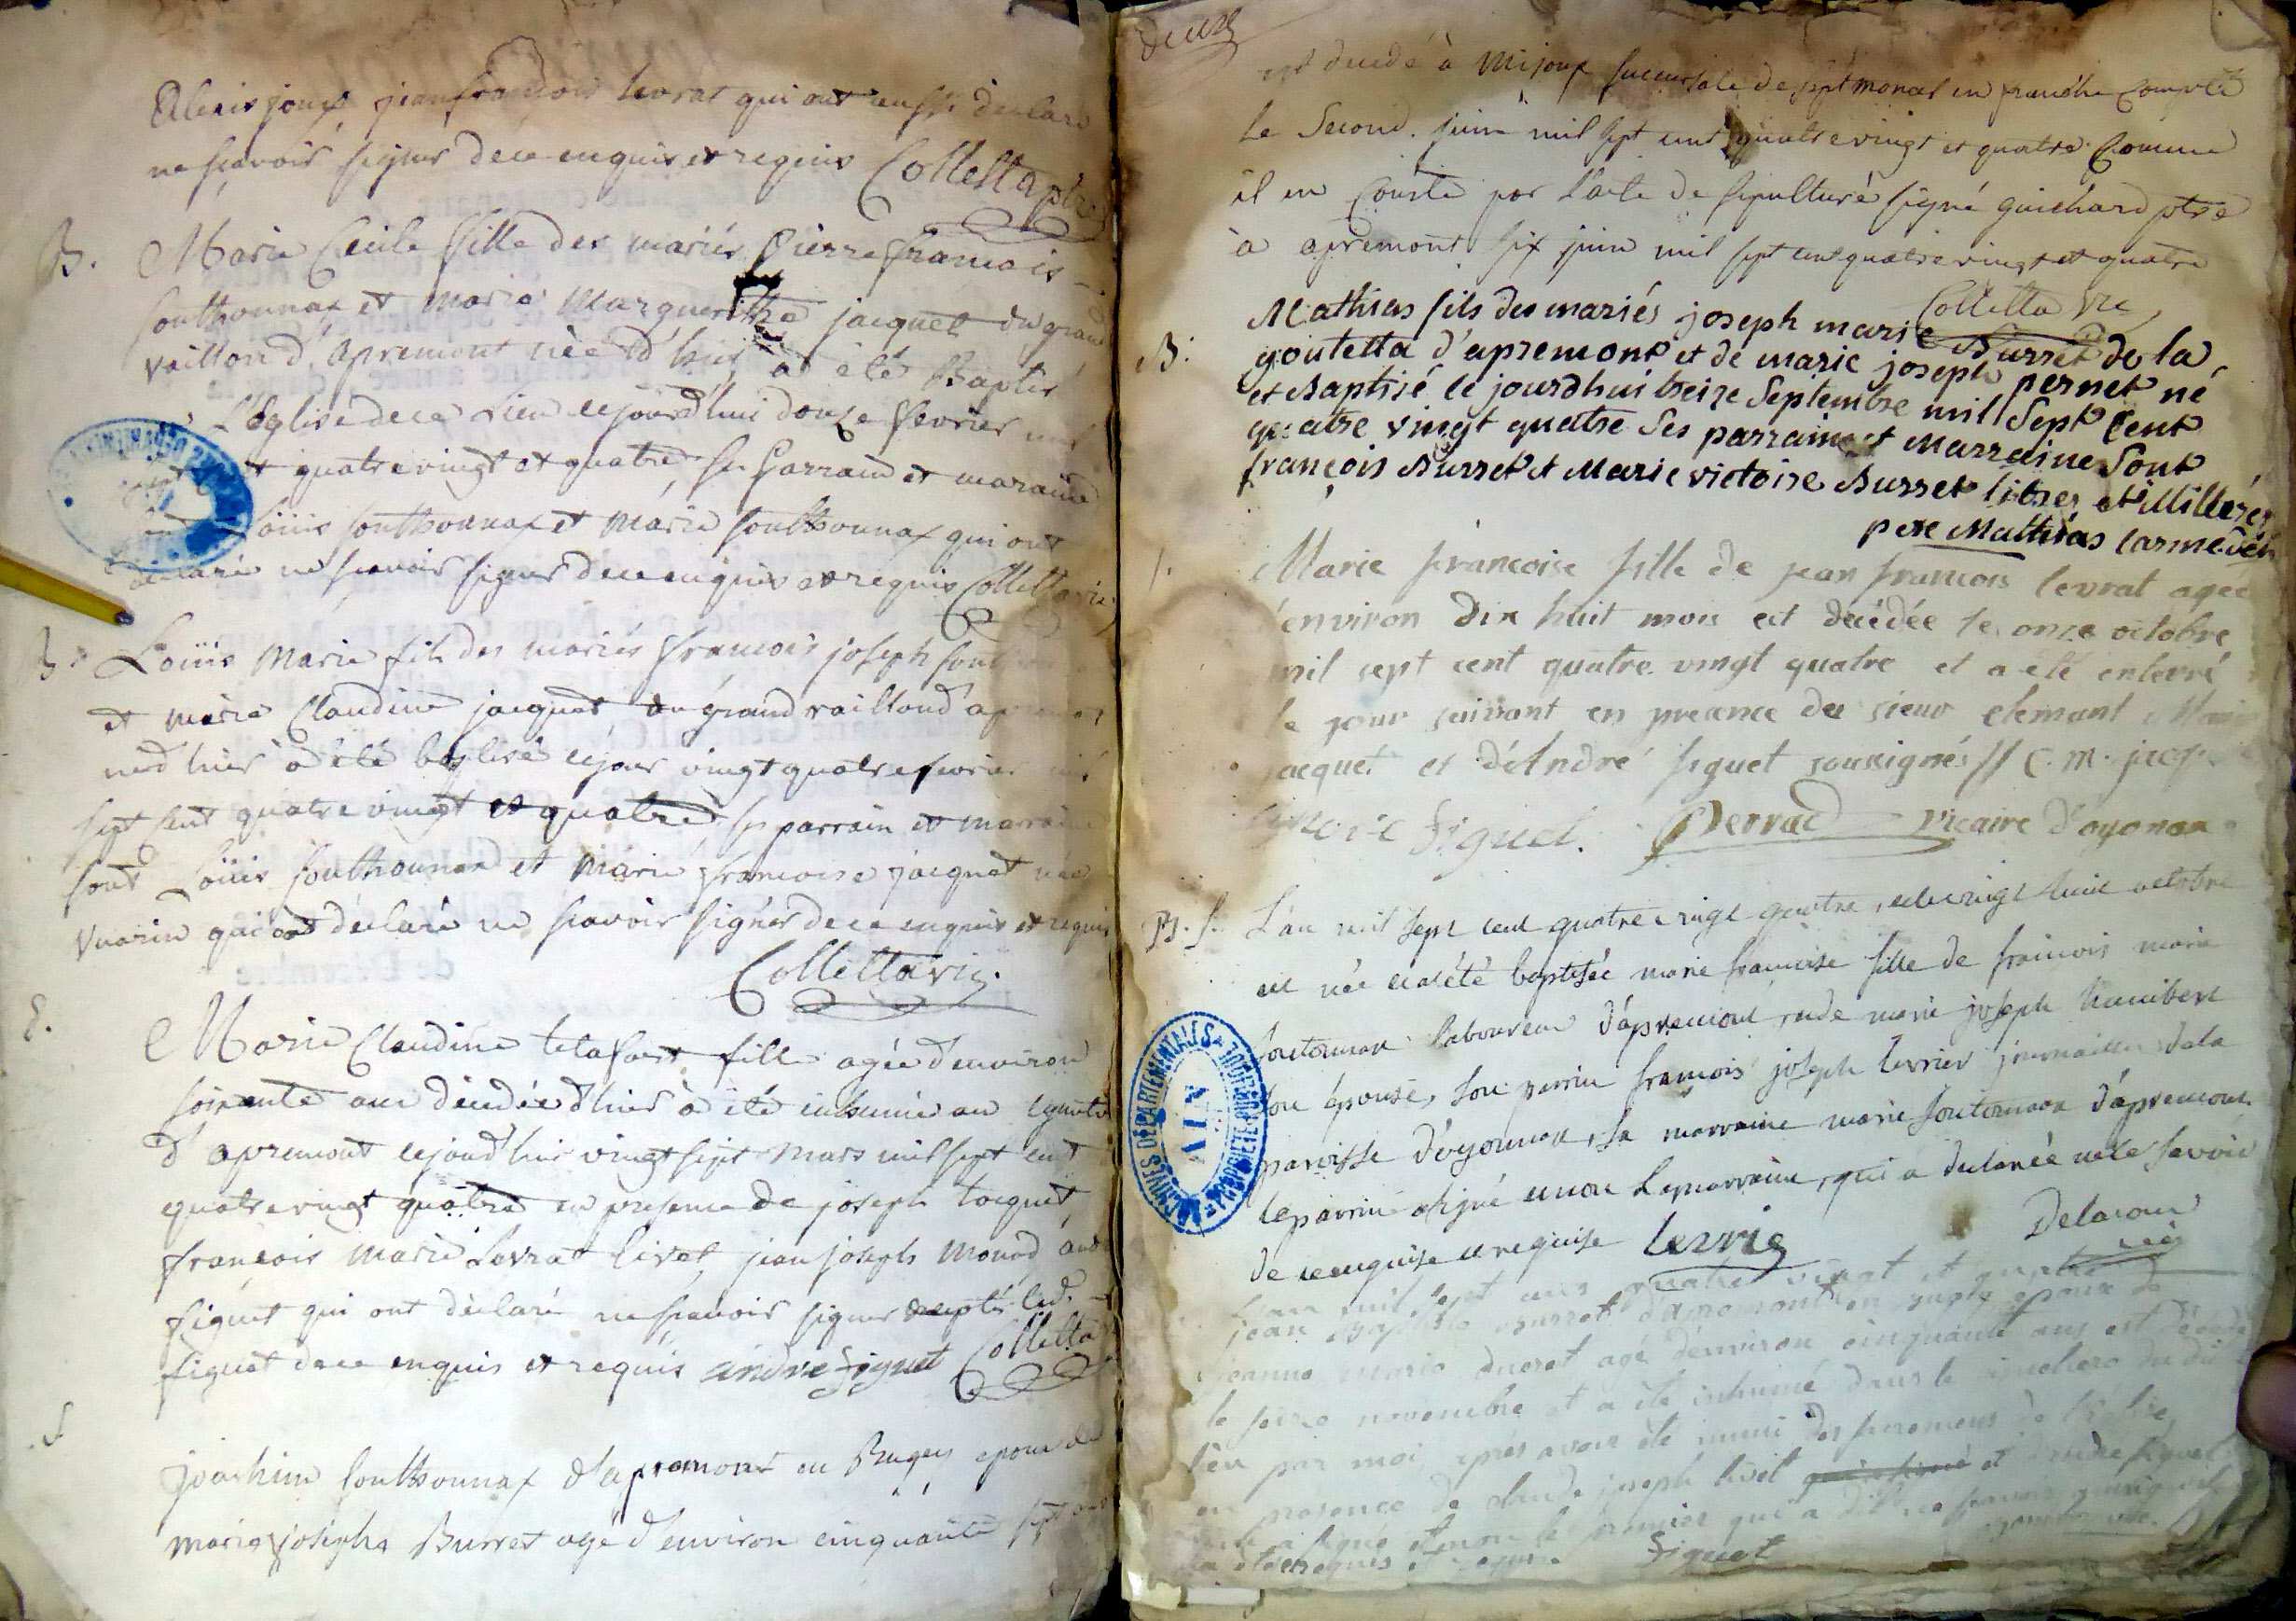 Alexis joux jean françois Levrat qui ont aussi déclaré
ne scavoir signer de ce enquis et requis Colletta ptre
B. Marie Cecile fille des mariés Pierre françois
Southonnax et marie Marguerithe jacquet du grand
vaillon d'apremont née d'hier à été Baptisé
L'église de ce Lieu ce jourd'hui douze fevrier mil
quatrevingt et quatre Ses Parrain et maraine
Loüis Southonnax et Marie Southonnax qui ont
déclaré ne scavoir signer de ce enquis et requis Colletta vic
B. Loüis Marie fils des mariés françois joseph
et marie Claudine jacquet du grand vaillond
né d'hier à été baptisé ce jour vingt quatre fevrier mil
sept Cent quatre vingt et quatre Ses parrain et marraine
sont Loüis Southonnax et Marie francoise jacquet née
Vuarin qui ont déclaré ne scavoir signer de ce enquis et requis
Colletta vic.
S. Marie Claudine fille agée d'environ
soixante ans décédée d'hier à été inhumée au
d'apremont ce jourd'hui vingt sept Mars mil sept cent
quatrevingt quatre en presence de joseph
françois Marie Levrat Livet, jean joseph Monod, andré
figuet qui ont déclaré ne scavoir signer excepté led.
figuet de ce enquis et requis andre figuet Colletta
S
joachim Southonnax d'apremont en Bugey epoux de
marie josephe Burret agé d'environ cinquante sept ans
deux
est decedé à Mijoux succursale de sept moncel en franche Comptée
le Second juin mil sept cent quatrevingt et quatre Comme
il en Conste par l'acte de sepulture signé guichard ptre
à apremont six juin mil sept cent quatrevingt et quatre
Colletta vic
B. Mathias fils des mariés joseph marie Burret de la
goutetta d'apremont et de marie joseph pernet né
et Baptisé le jourdhui treize Septembre mil Sept Cent
quatre vingt quatre Ses parrain et Marraine Sont
françois Burret et Marie victoire Burret
pere Mathias Carme
Marie françoise fille de jean françois levrat agée
d'environ dix huit mois est décédée le onze octobre
mil sept cent quatre vingt quatre et a été enterré
le jour suivant en presence des sieur clemant Marie
jacquet et d'Andre figuet soussignés // C. m. jacq
andre figuet. Perrad vicaire d'oyonax
B. f. L'an mil Sept cent quatre vingt quatre, et le vingt huit octobre
est née et a été baptisée marie francoise fille de francois marie
Soutonnax laboureur d'apremont, et de marie joseph humbert
son épouse, son parrin francois joseph levrier journaillier de la
paroisse d'oyonnax, sa marraine marie Soutonnax d'apremont
le parrin a signé et non la marraine, qui a declarée ne le savoir
de ce enquise et requise levrie Delacour
vic
L'an mil sept cens quatre vingt et quatre
jean Baptiste Burret d'apremont en bugey epoux de
jeanne marie ducret agé d'environ cinquante ans est decedé
le seize novembre et a été inhumé dans le cimetiere dudit
lieu par moi après avoir été muni des sacremens de l'église
en presence de claude joseph livet et d'andre figuet
qui a signé et non le premier qui a dit ne scavoir
enquis et requis figuet